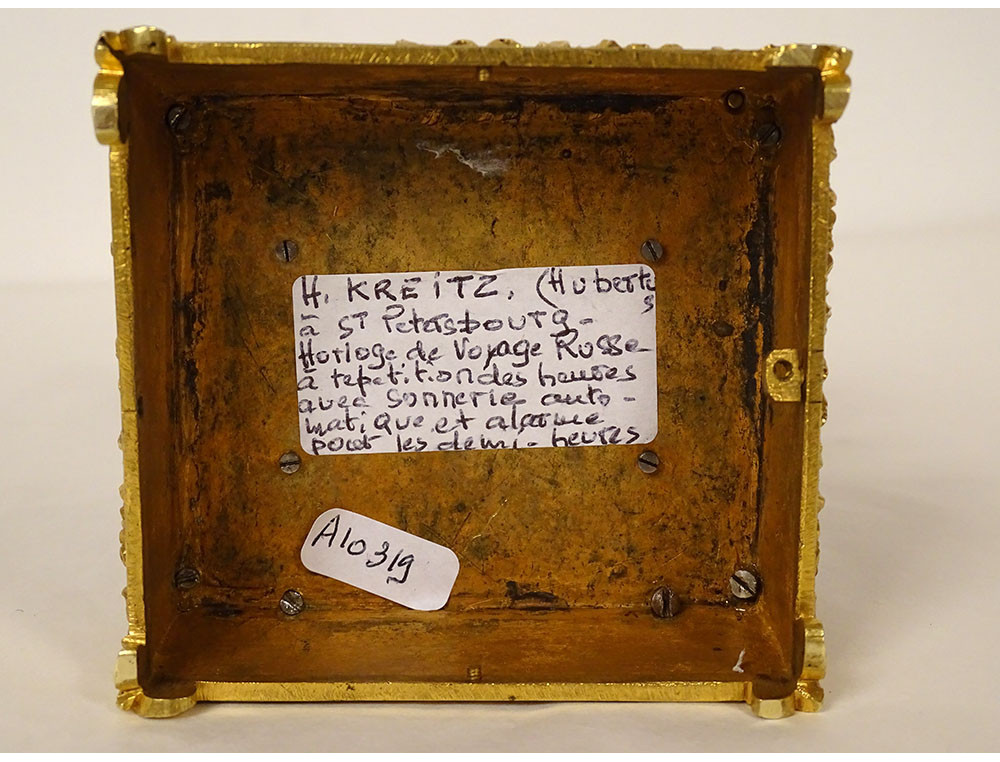 H. KREITZ, (Huberts
à ST Petersbourg -
Horloge de Voyage Russe
à repetition des heures
avec sonnerie auto -
matique et alarme
pour les demi-heures
A10319